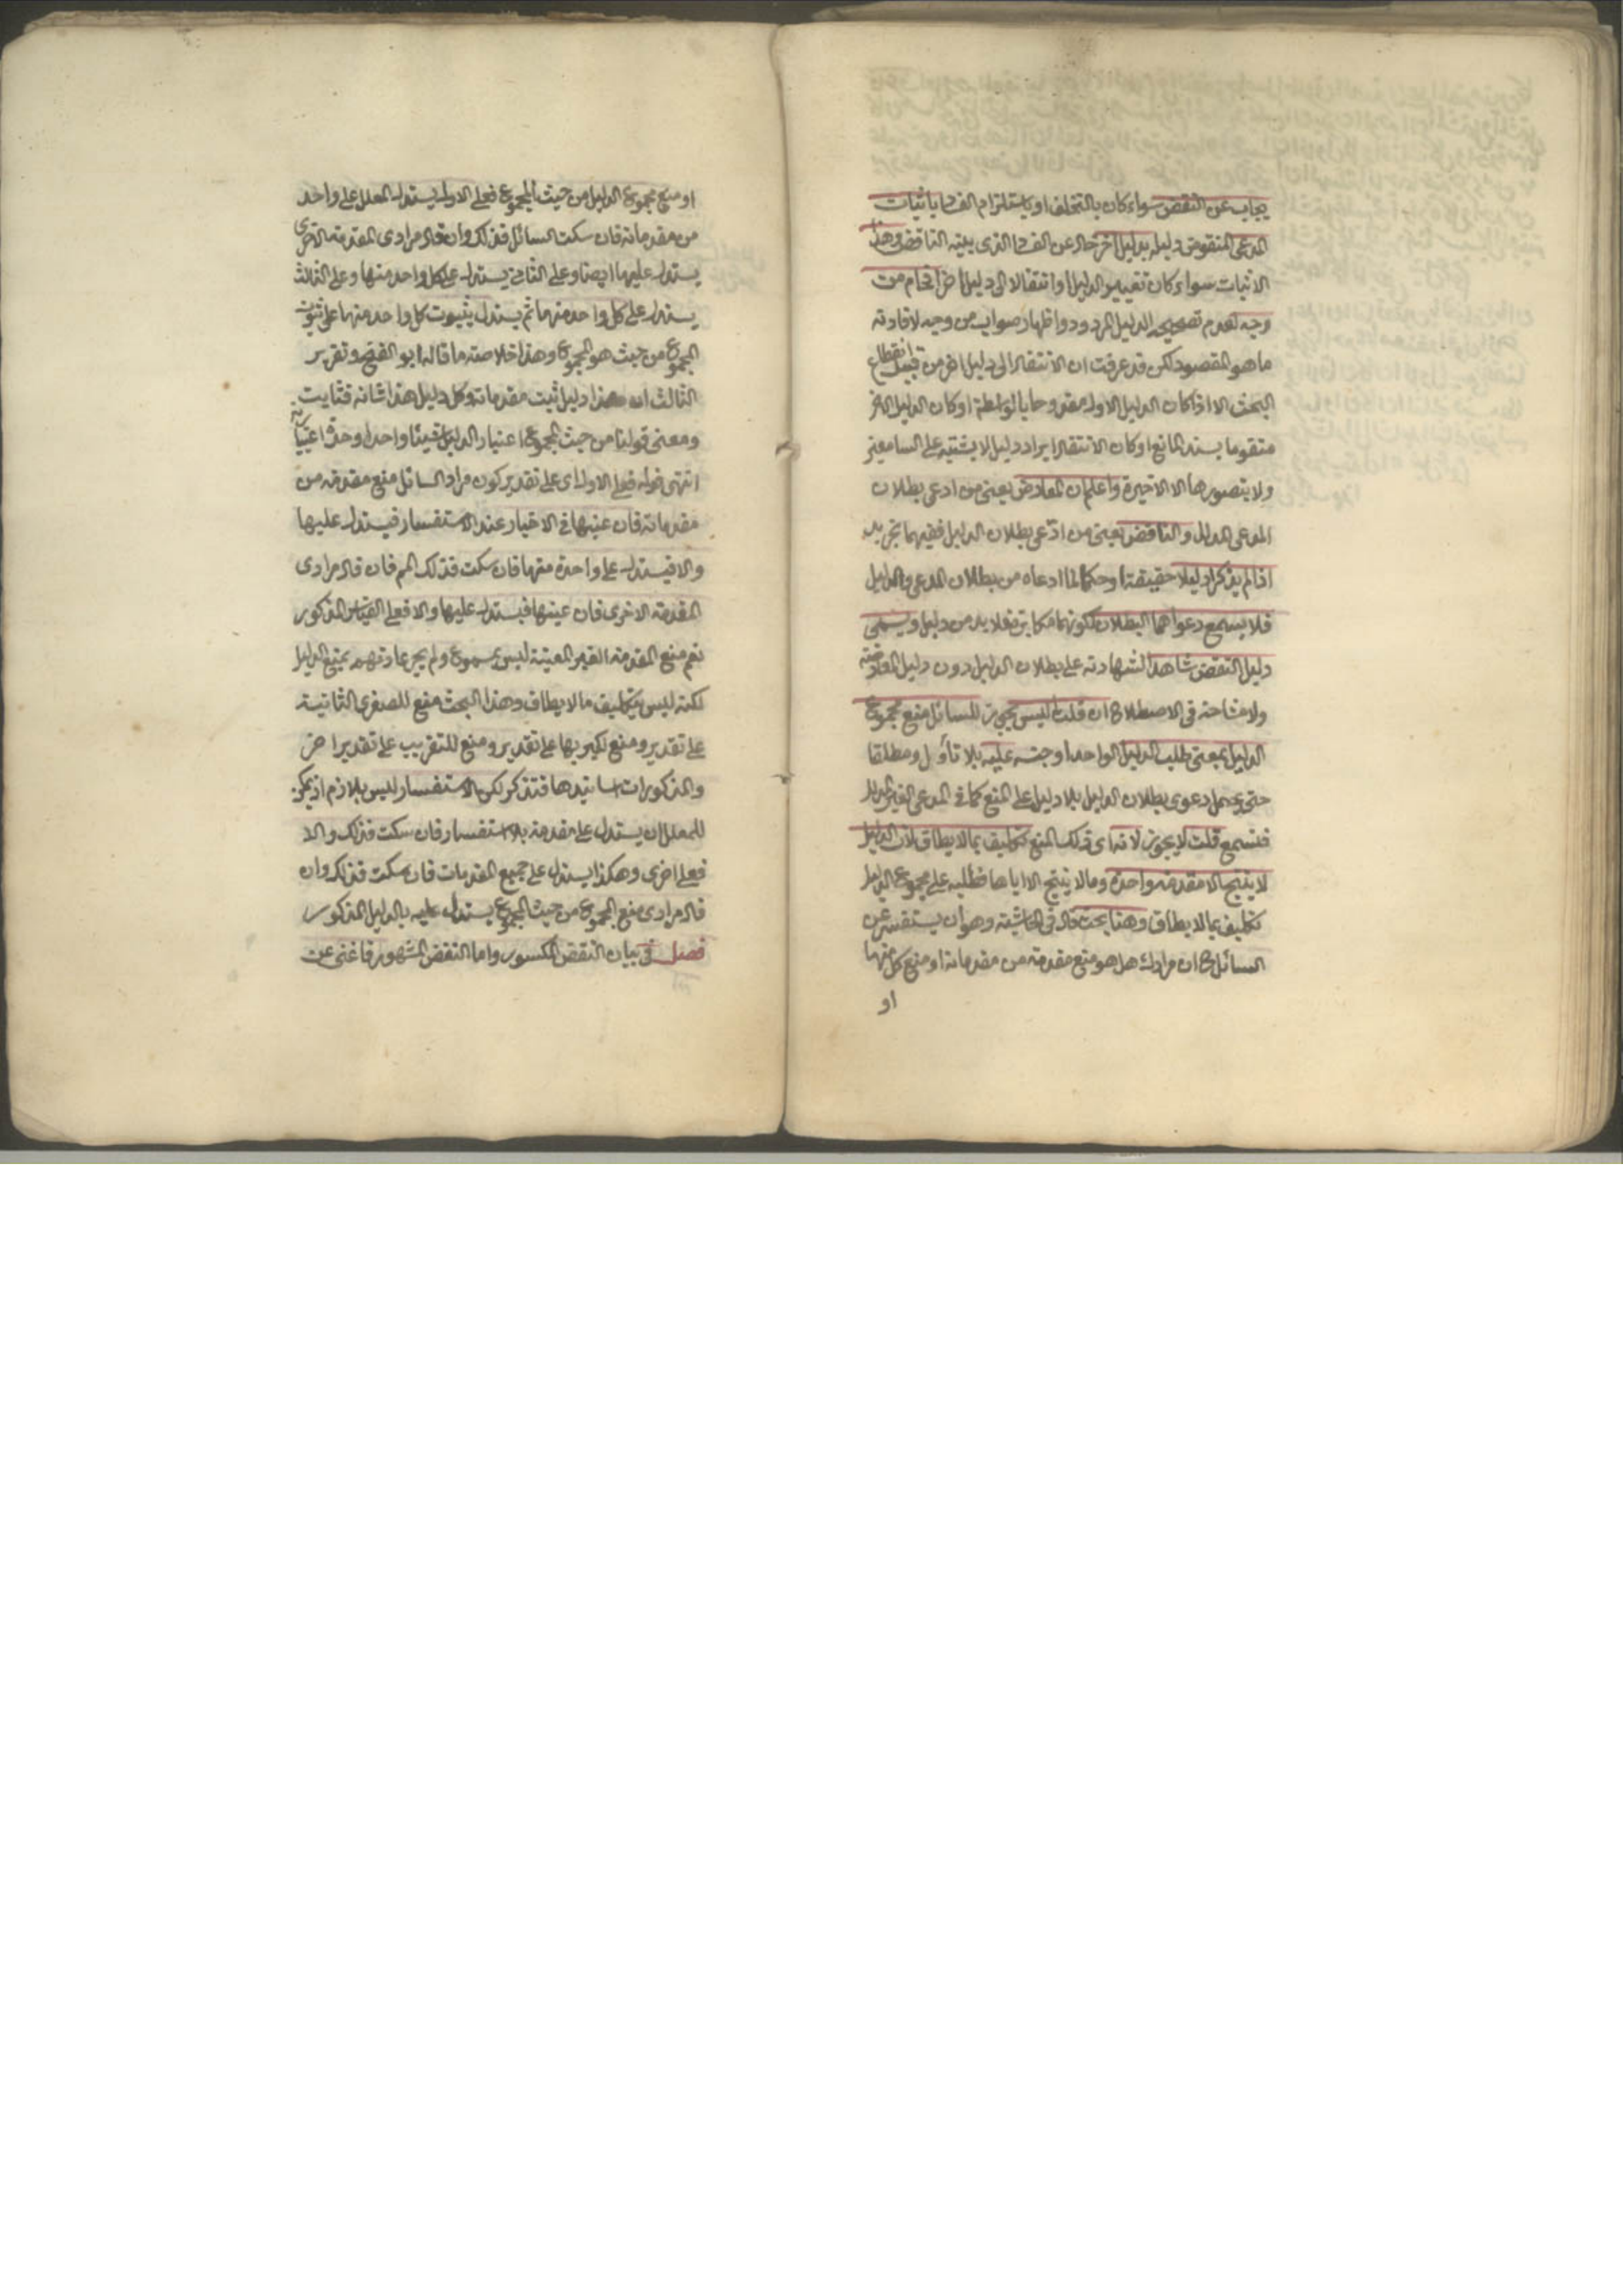 يجاب عن النقض سواء كان بالتخلف او باستلزام الفساد باثبات
المدعى المنقوض دليله بدليل آخر خال عن الفساد الذى بينه الناقض وهذا
الاثبات سواء كان تغيير الدليل او انتقالا الى دليل اخر افحام من
وجه لعدم تصحيحه الدليل المردود واظهار صواب من وجه لافادته
ما هو المقصود لكن قد عرفت ان الانتقال الى دليل اخر من قبيل انقطاع
البحث الا اذا كان الدليل الاول مقدوحا بالواسطة او كان الدليل الاخر
متقوما بسند المانع او كان الانتقال ايراد دليل لا يشتبه على السامعين
ولا يتصور ها الا الاخيرة واعلم ان المعارض يعنى من ادعى بطلان
المدعى المدلل والناقض يعنى من ادعى بطلان الدليل ففيهما تجريد
اذا لم يذكرا دليلا حقيقة او حكما لما ادعاه من بطلان المدعى والدليل
فلا يسمع دعواهما البطلان لكونهما مكابرة فلا بد من دليل ويسمى
دليل النقض شاهدا لشهادته على بطلان الدليل دون دليل المعارضة
ولا مشاحة فى الاصطلاح ان قلت اليس يجوز للسائل منع مجموع
الدليل بمعنى طلب الدليل الواحد او جنسه عليه بلا تأول ومطلقا
حتى يحمل دعوى بطلان الدليل بلا دليل على المنع كما فى المدعى الغير المدلل
فتسمع قلت لا يجوز لانه اى ذلك المنع تكليف بما لا يطاق لان الدليل
لا ينتج الا مقدمة واحدة وما لا ينتج الا اياها فطلبه على مجموع الدليل
تكليف بما لا يطاق وهنا بحث قال فى الحاشية وهو ان يستفسر عن
السائل ح ان مرادك هل هو منع مقدمة من مقدماته او منع كل منها
او
او منع مجموع الدليل من حيث المجموع فعلى الاول يستدل المعلل على واحد
من مقدماته فان سكت السائل فذلك وان قال مرادى المقدمة الاخرى
يستدل عليها ايضا وعلى الثانى يستدل على كل واحد منها وعلى الثالث
يستدل على كل واحد منهما ثم يستدل بثبوت كل واحد منها على ثبوت
المجموع من حيث هو المجموع وهذا خلاصة ما قاله ابو الفتح وتقرير
الثالث ان هذا دليل ثبت مقدماته وكل دليل هذا شانه فثابت
ومعنى قولنا من حيث المجموع اعتبار الدليل شيئا واحدا وحدة اعتبارية
انتهى قوله فعلى الاول اى على تقدير كون مراد السائل منع مقدمة من
مقدماته فان عينها فى الاخبار عند الاستفسار فيستدل عليها
والا فيستدل على واحدة منها فان سكت فذلك المم فان قال مرادى
المقدمة الاخرى فان عينها فيستدل عليها والا فعلى القياس المذكور
نعم منع المقدمة الغير المعينة ليس بمسموع ولم يجر عادتهم بمنع الدليل
لكنه ليس بتكليف ما لا يطاق وهذا البحث منع للصغرى الثانية
على تقدير ومنع لكبريها على تقدير ومنع للتقريب على تقدير اخر
والمذكورات اسانيدها فتذكر لكن الاستفسار ليس بلازم اذ يمكن
للمعلل ان يستدل على مقدمة بلا استفسار فان سكت فذلك والا
فعلى اخرى وهكذا يستدل على جميع المقدمات فان سكت فذلك وان
قال مرادى منع المجموع من حيث المجموع يستدل عليه بالدليل المذكور
فصل فى بيان النقض المكسور واما النقض المشهور فاغنى عن